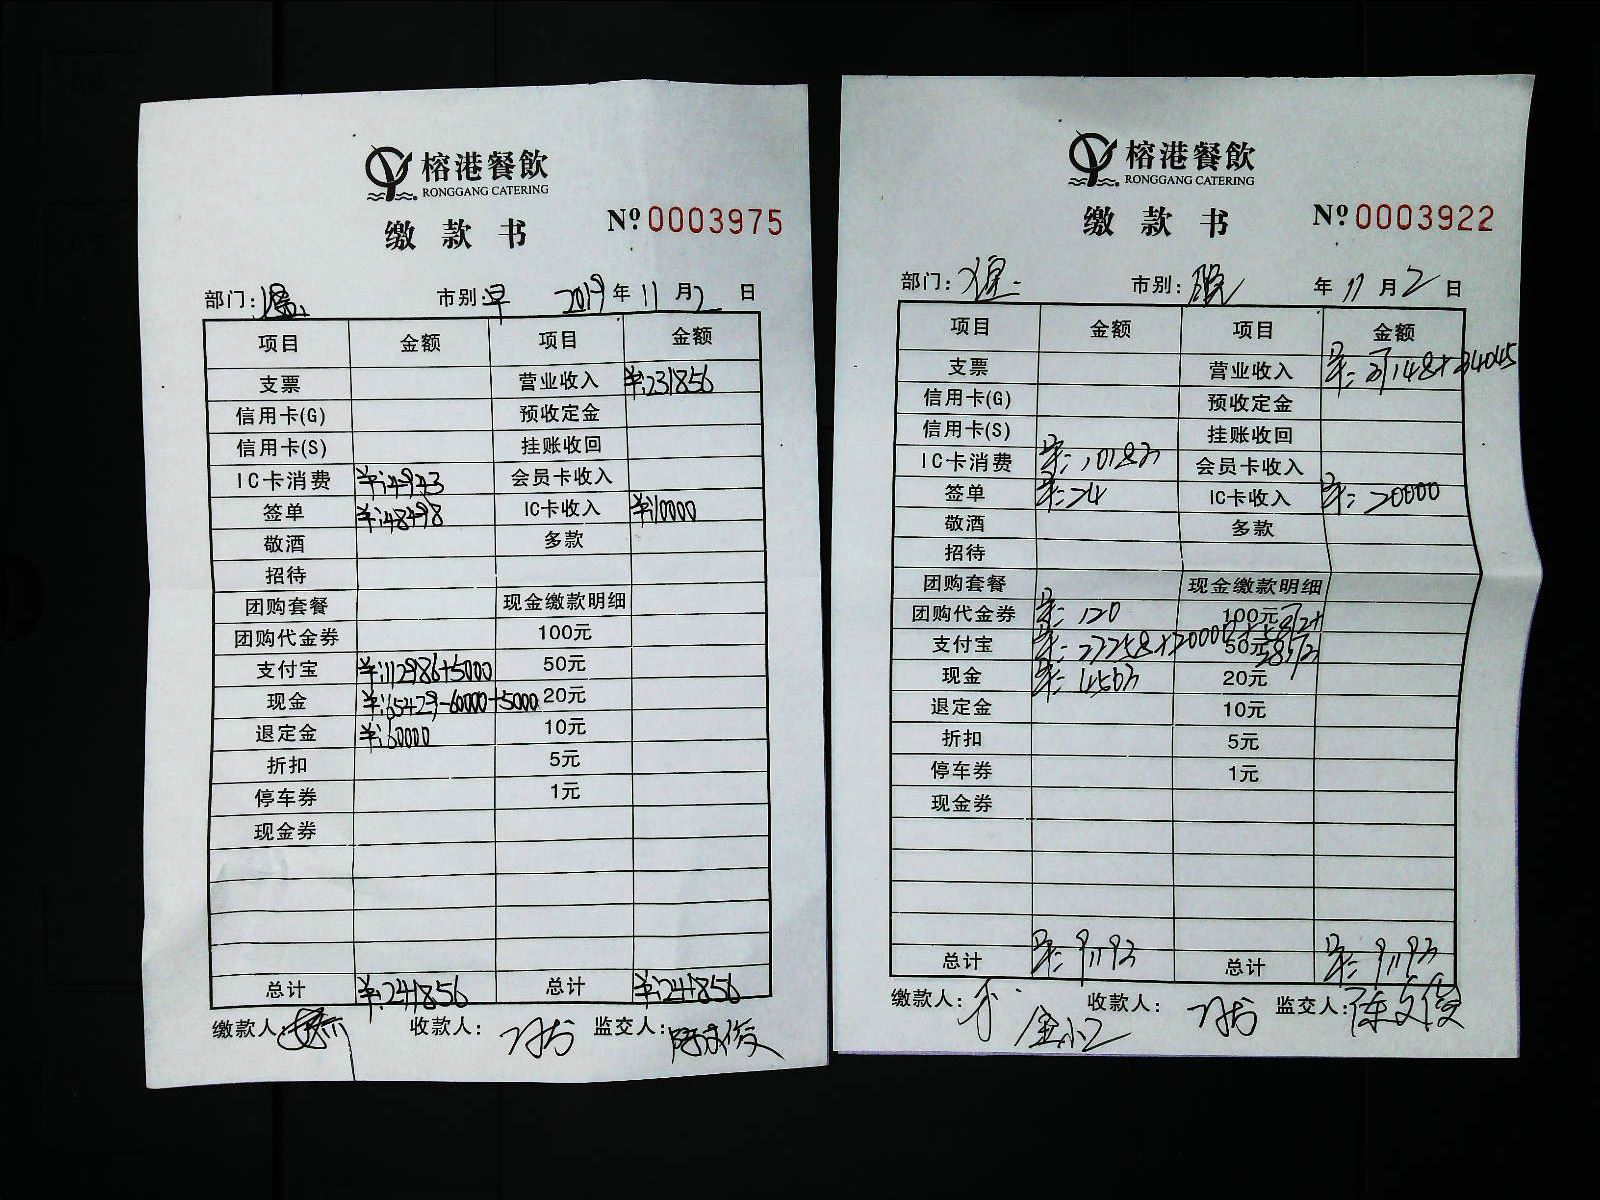 榕港餐飲
RONGGANG CATERING
缴款书 № 0003975
部门: 市别:早 2019年11月2日
项目 金额 项目 金额
支票 营业收入 ¥:231856
信用卡(G) 预收定金
信用卡(S) 挂账收回
IC卡消费 ¥:4943 会员卡收入
签单 ¥:48498 IC卡收入 ¥:10000
敬酒 多款
招待
团购套餐 现金缴款明细
团购代金券 100元
支付宝 ¥:112986+5000 50元
现金 ¥:65429-60000+5000 20元
退定金 ¥:60000 10元
折扣 5元
停车券 1元
现金券
总计 ¥:241856 总计 ¥:241856
缴款人: 收款人: 监交人:
榕港餐飲
RONGGANG CATERING
缴款书 № 0003922
部门: 市别:晚 年11月2日
项目 金额 项目 金额
支票 营业收入
信用卡(G) 预收定金
信用卡(S) 挂账收回
IC卡消费 会员卡收入
签单 ¥:24 IC卡收入 ¥:20000
敬酒 多款
招待
团购套餐 现金缴款明细
团购代金券 ¥:120 100元
支付宝 50元
现金 20元
退定金 10元
折扣 5元
停车券 1元
现金券
总计 ¥:91193 总计 ¥:91193
缴款人: 收款人: 监交人:陈文俊